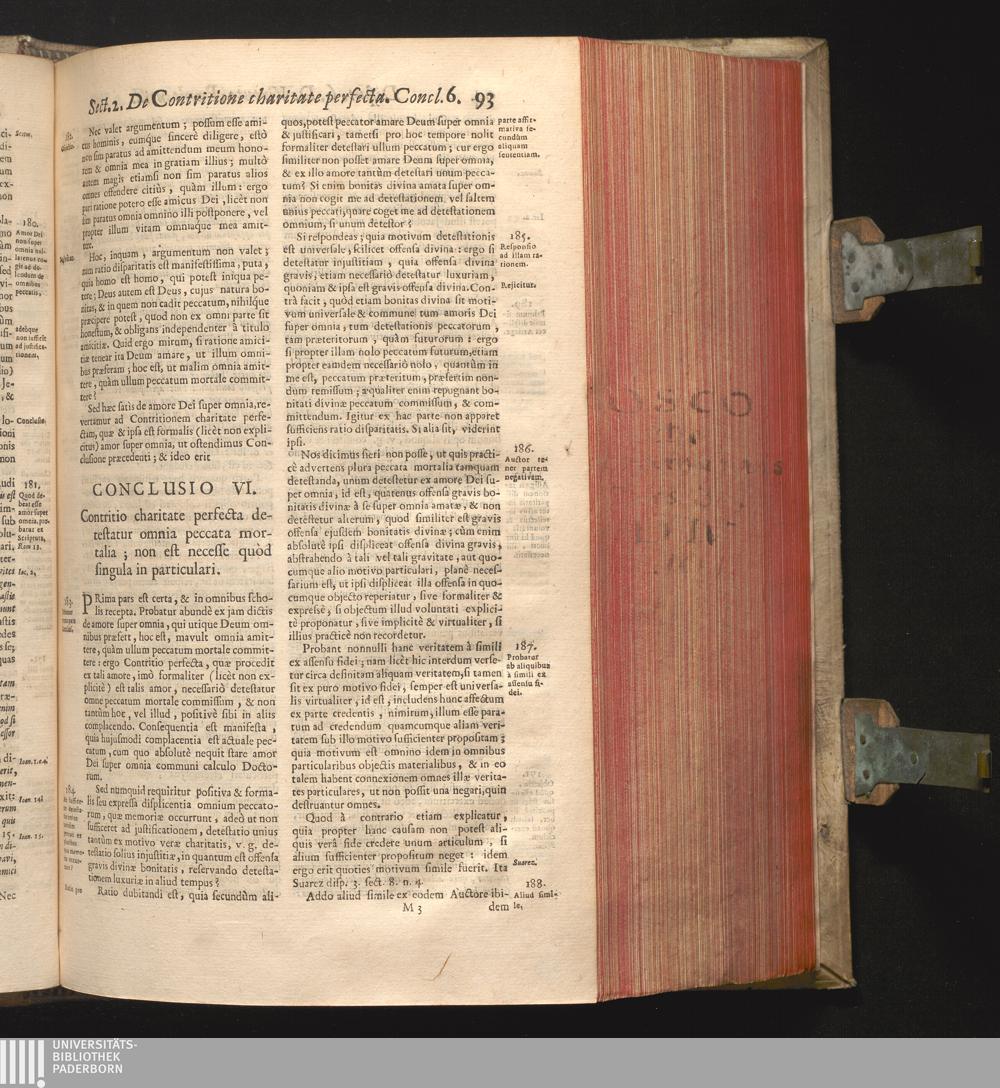 Sect. 2. De Contritione charitate perfecta. Concl. 6. 93
Nec valet argumentum; possum esse ami-
cus hominis, eumque sincerè diligere, estò
non sim paratus ad amittendum meum hono-
rem & omnia mea in gratiam illius; multò
autem magis etiamsi non sim paratus alios
omnes offendere citiùs, quàm illum: ergo
pari ratione potero esse amicus Dei, licèt non
sim paratus omnia omnino illi postponere, vel
propter illum vitam omniaque mea amit-
tere.
Hoc, inquam, argumentum non valet;
nam ratio disparitatis est manifestissima, puta,
quia homo est homo, qui potest iniqua pe-
tere; Deus autem est Deus, cujus natura bo-
nitas, & in quem non cadit peccatum, nihilque
præcipere potest, quod non ex omni parte sit
honestum, & obligans independenter à titulo
amicitiæ. Quid ergo mirum, si ratione amici-
tiæ tenear ita Deum amare, ut illum omni-
bus præferam; hoc est, ut malim omnia amit-
tere, quàm ullum peccatum mortale commit-
tere?
Sed hæc satis de amore Dei super omnia, re-
vertamur ad Contritionem charitate perfe-
ctam, quæ & ipsa est formalis (licèt non expli-
citus) amor super omnia, ut ostendimus Con-
clusione præcedenti; & ideo erit
CONCLUSIO VI.
Contritio charitate perfecta de-
testatur omnia peccata mor-
talia; non est necesse quòd
singula in particulari.
183.
PRima pars est certa, & in omnibus scho-
lis recepta. Probatur abundè ex jam dictis
de amore super omnia, qui utique Deum om-
nibus præfert, hoc est, mavult omnia amit-
tere, quàm ullum peccatum mortale commit-
tere: ergo Contritio perfecta, quæ procedit
ex tali amore, imò formaliter (licèt non ex-
plicitè) est talis amor, necessariò detestatur
omne peccatum mortale commissum, & non
tantùm hoc, vel illud, positivè sibi in aliis
complacendo. Consequentia est manifesta,
quia hujusmodi complacentia est actuale pec-
catum, cum quo absolutè nequit stare amor
Dei super omnia communi calculo Docto-
rum.
184.
Sed numquid requiritur positiva & forma-
lis seu expressa displicentia omnium peccato-
rum, quæ memoriæ occurrunt, adeò ut non
sufficeret ad justificationem, detestatio unius
tantùm ex motivo veræ charitatis, v. g. de-
testatio solius injustitiæ, in quantum est offensa
gravis divinæ bonitatis, reservando detesta-
tionem luxuriæ in aliud tempus?
Ratio dubitandi est, quia secundùm ali-
quos, potest peccator amare Deum super omnia
& justificari, tametsi pro hoc tempore nolit
formaliter detestari ullum peccatum; cur ergo
similiter non posset amare Deum super omnia,
& ex illo amore tantùm detestari unum pecca-
tum? Si enim bonitas divina amata super om-
nia non cogit me ad detestationem vel saltem
unius peccati, quare coget me ad detestationem
omnium, si unum detestor?
parte affir-
mativa se-
cundùm
aliquam
sententiam.
Si respondeas; quia motivum detestationis
est universale, scilicet offensa divina: ergo si
detestatur injustitiam, quia offensa divina
gravis; etiam necessariò detestatur luxuriam,
quoniam & ipsa est gravis offensa divina. Con-
trà facit, quòd etiam bonitas divina sit moti-
vum universale & commune tum amoris Dei
super omnia, tum detestationis peccatorum,
tam præteritorum, quàm futurorum: ergo
si propter illam nolo peccatum futurum, etiam
propter eamdem necessariò nolo, quantùm in
me est, peccatum præteritum, præsertim non-
dum remissum; æqualiter enim repugnant bo-
nitati divinæ peccatum commissum, & com-
mittendum. Igitur ex hac parte non apparet
sufficiens ratio disparitatis. Si alia sit, viderint
ipsi.
185.
Responsio
ad illam ra-
tionem.
Rejicitur.
Nos dicimus fieri non posse, ut quis practi-
cè advertens plura peccata mortalia tamquam
detestanda, unum detestetur ex amore Dei su-
per omnia, id est, quatenus offensa gravis bo-
nitatis divinæ à se super omnia amatæ, & non
detestetur alterum, quod similiter est gravis
offensa ejusdem bonitatis divinæ; cùm enim
absolutè ipsi displiceat offensa divina gravis,
abstrahendo à tali vel tali gravitate, aut quo-
cumque alio motivo particulari, planè neces-
sarium est, ut ipsi displiceat illa offensa in quo-
cumque objecto reperiatur, sive formaliter &
expressè, si objectum illud voluntati explici-
tè proponatur, sive implicitè & virtualiter, si
illius practicè non recordetur.
186.
Auctor te-
net partem
negativam.
Probant nonnulli hanc veritatem à simili
ex assensu fidei; nam licèt hic interdum verse-
tur circa definitam aliquam veritatem, si tamen
sit ex puro motivo fidei, semper est universa-
lis virtualiter, id est, includens hanc affectum
ex parte credentis, nimirum, illum esse para-
tum ad credendum quamcumque aliam veri-
tatem sub illo motivo sufficienter propositam;
quia motivum est omnino idem in omnibus
particularibus objectis materialibus, & in eo
talem habent connexionem omnes illæ verita-
tes particulares, ut non possit una negari, quin
destruantur omnes.
187.
Probatur
ab aliquibus
à simili ex
assensu fi-
dei.
Quod à contrario etiam explicatur,
quia propter hanc causam non potest ali-
quis verâ fide credere unum articulum, si
alium sufficienter propositum neget: idem
ergo erit quoties motivum simile fuerit. Ita
Suarez disp. 3. sect. 8. n. 4.
Suarez.
Addo aliud simile ex eodem Auctore ibi-
188.
Aliud simi-
le.
M 3
dem
180.
Conclusio
181.
UNIVERSITÄTS-
BIBLIOTHEK
PADERBORN